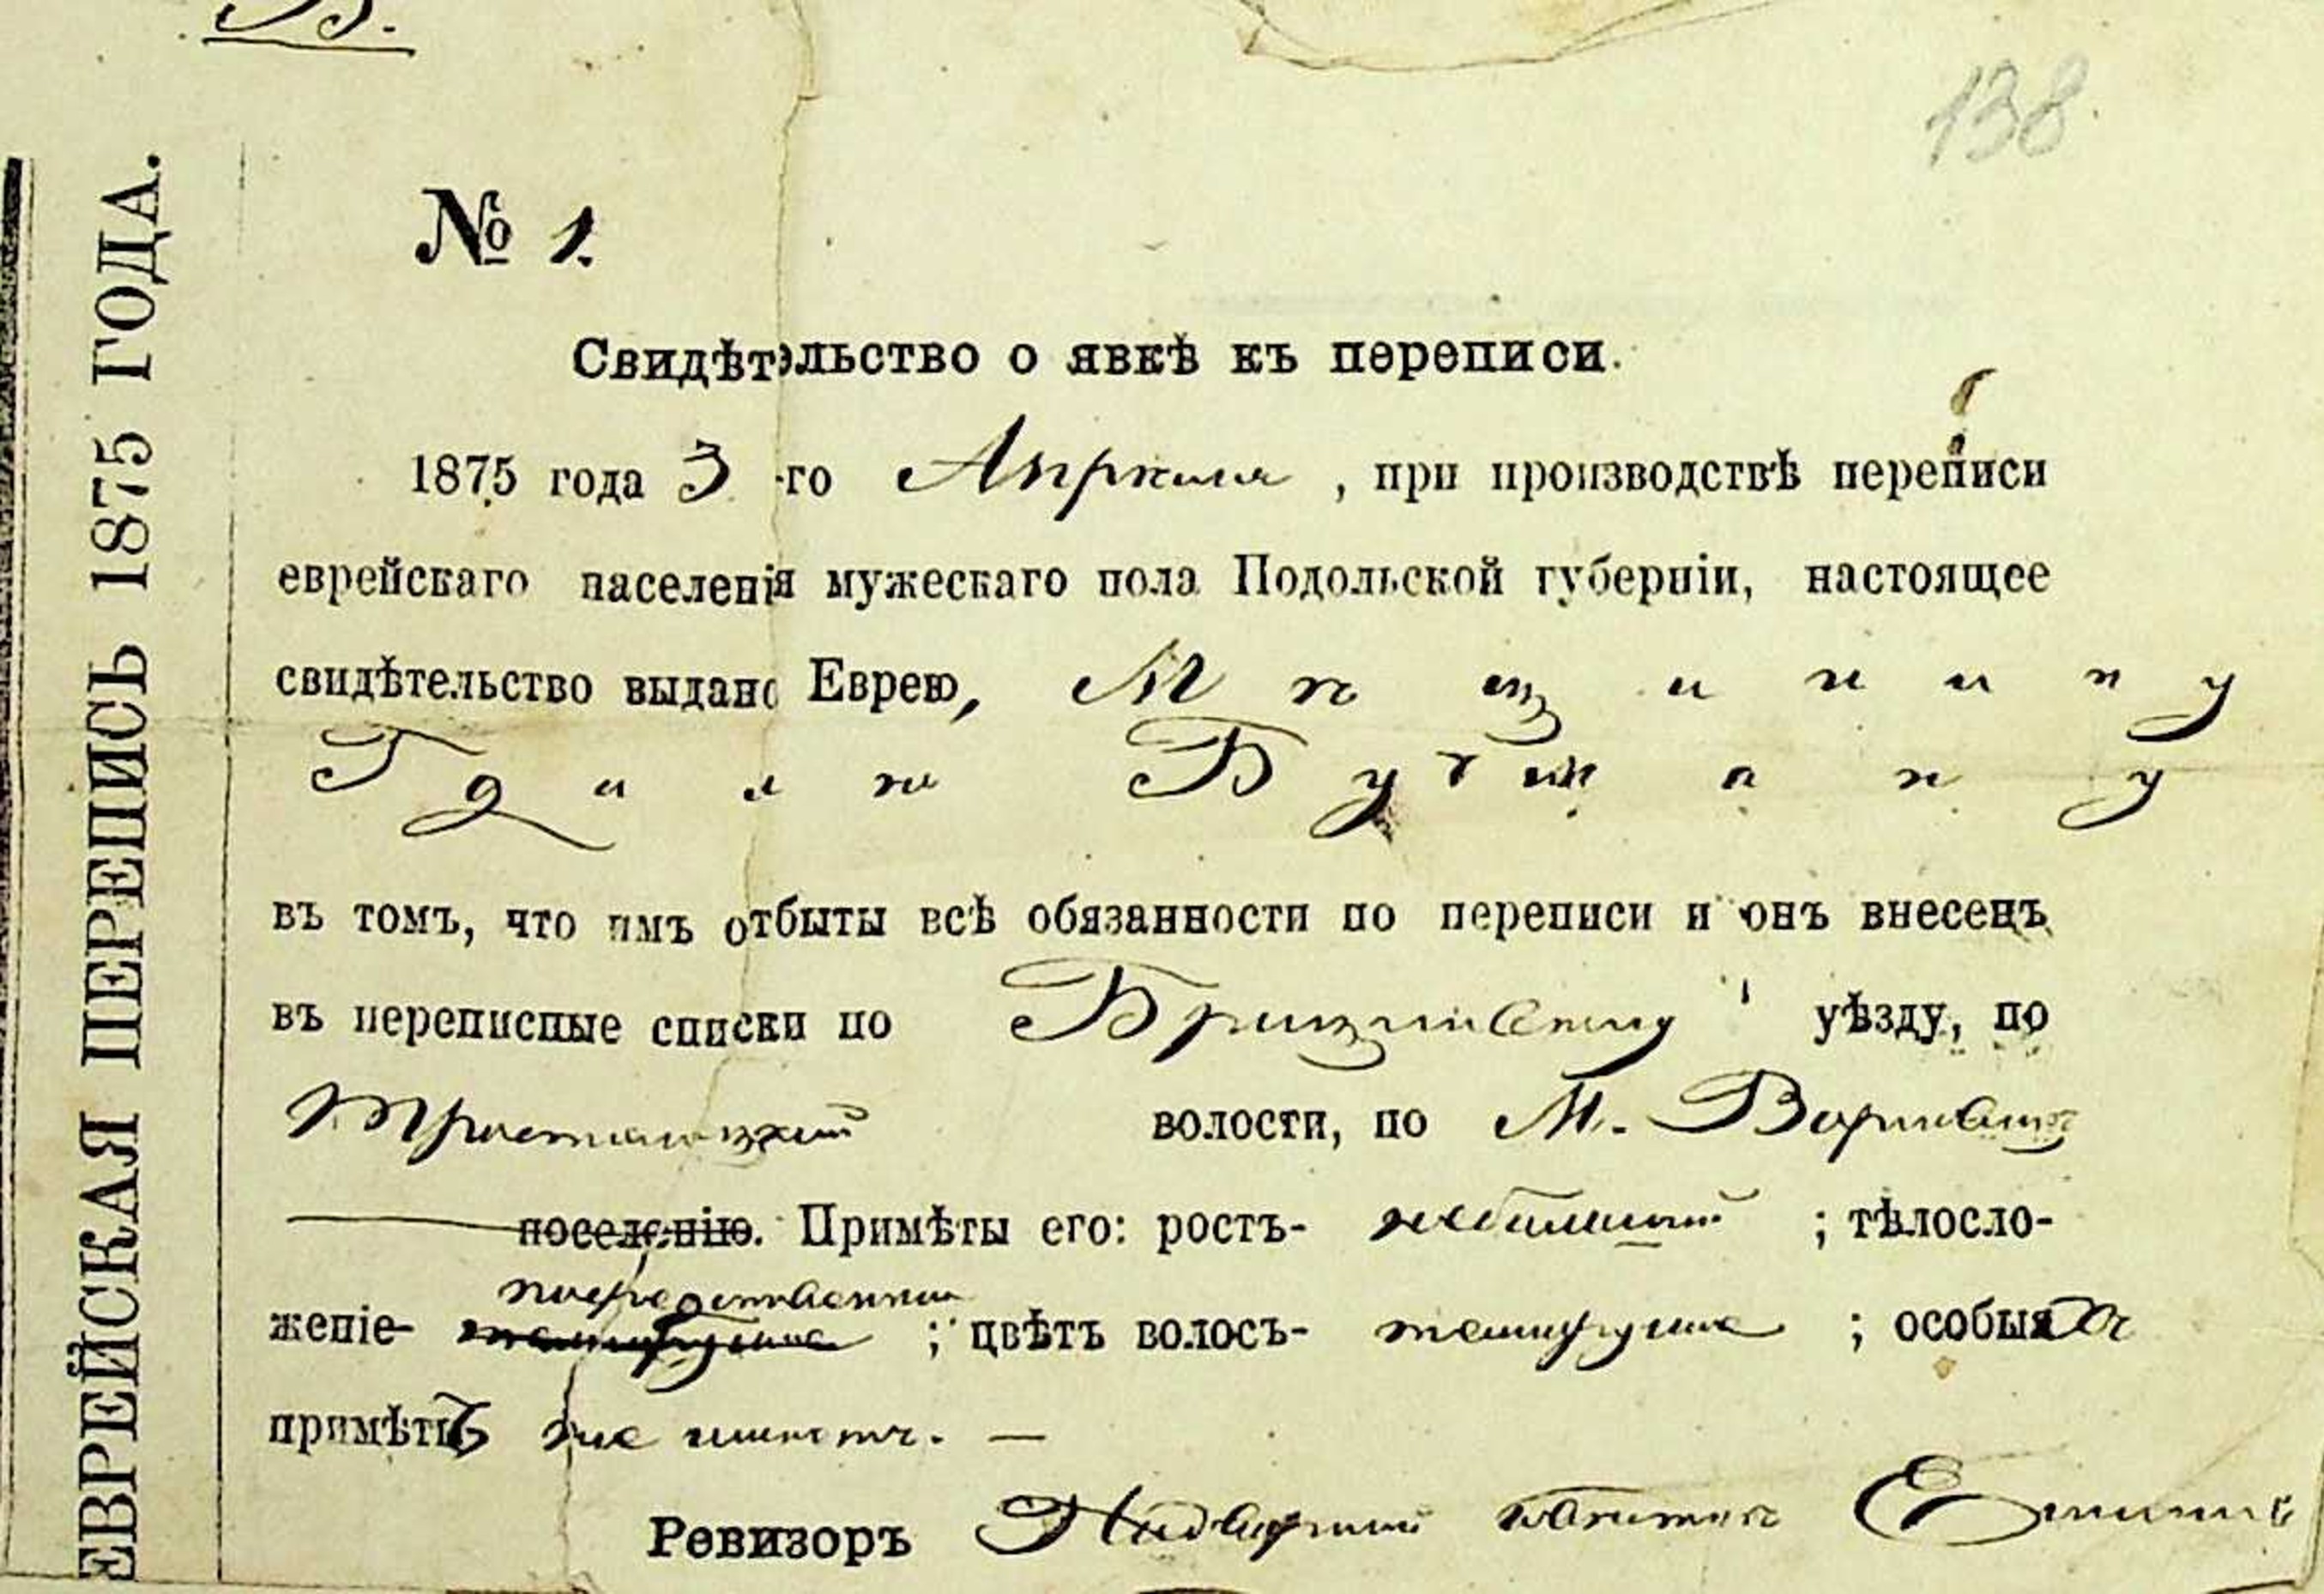 В.
138
ЕВРЕЙСКАЯ ПЕРЕПИСЬ 1875 ГОДА.
№ 1.
Свидѣтельство о явкѣ къ переписи.
1875 года 3 -го Апрѣля , при производствѣ переписи
еврейскаго населенія мужескаго пола Подольской губерніи, настоящее
свидѣтельство выдано Еврею,
Бутману
въ томъ, что имъ отбыты всѣ обязанности по переписи и онъ внесенъ
въ переписные списки по уѣзду, по
Тростянецкой волости, по М.
поселенію. Примѣты его: ростъ- небольшой ; тѣлосло-
посредственное
женіе- темнорусые ; цвѣтъ волосъ- темнорусые ; особыхъ
примѣтъ не имѣетъ. —
Ревизоръ Надворный Совѣтникъ